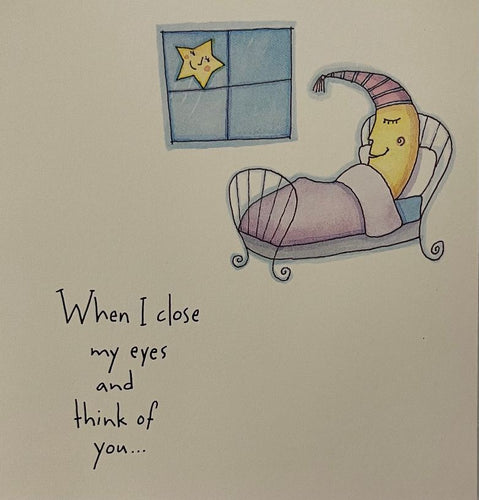 When I close
my eyes
and
think of
you...